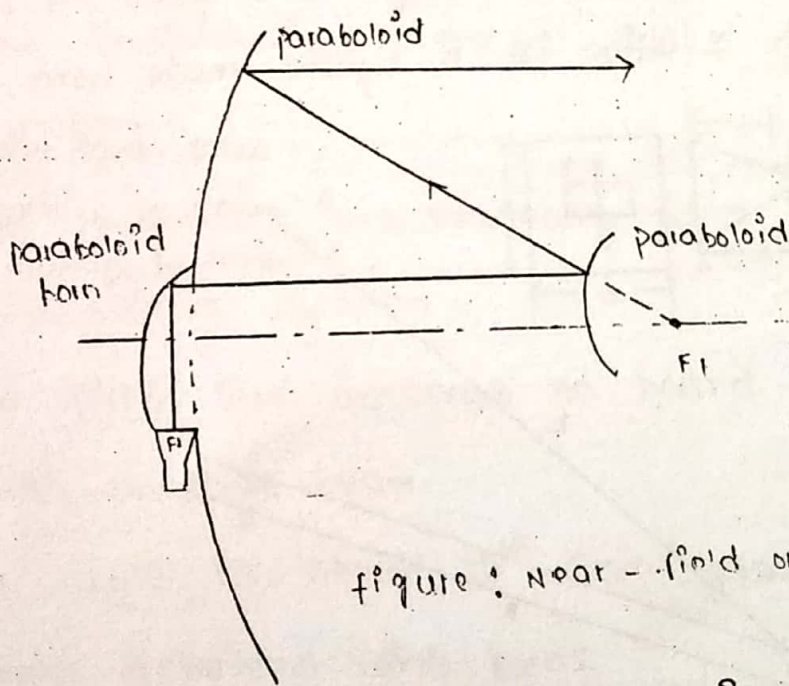 paraboloid
paraboloid
horn
paraboloid
F1
F1
figure: Near-field